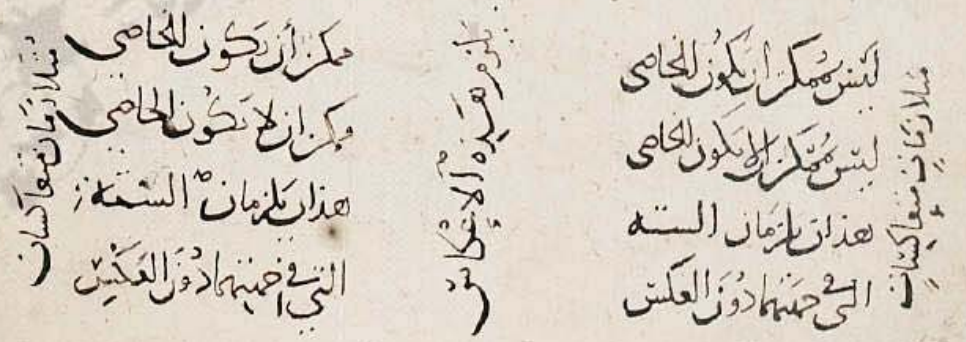 متلازمان متعاكسان
ليس بممكن ان يكون الخاصي
ليس بممكن الا يكون الخاصي
هذان يلزمان الستة
التي في جنبتهما دون العكس
يلزم هذه الانعكاس
ممكن أن يكون الخاصي
ممكن ان لا يكون الخاصي
هذان يلزمان الستة
التي في جنبتهما دون العكس
متلازمان متعاكسان